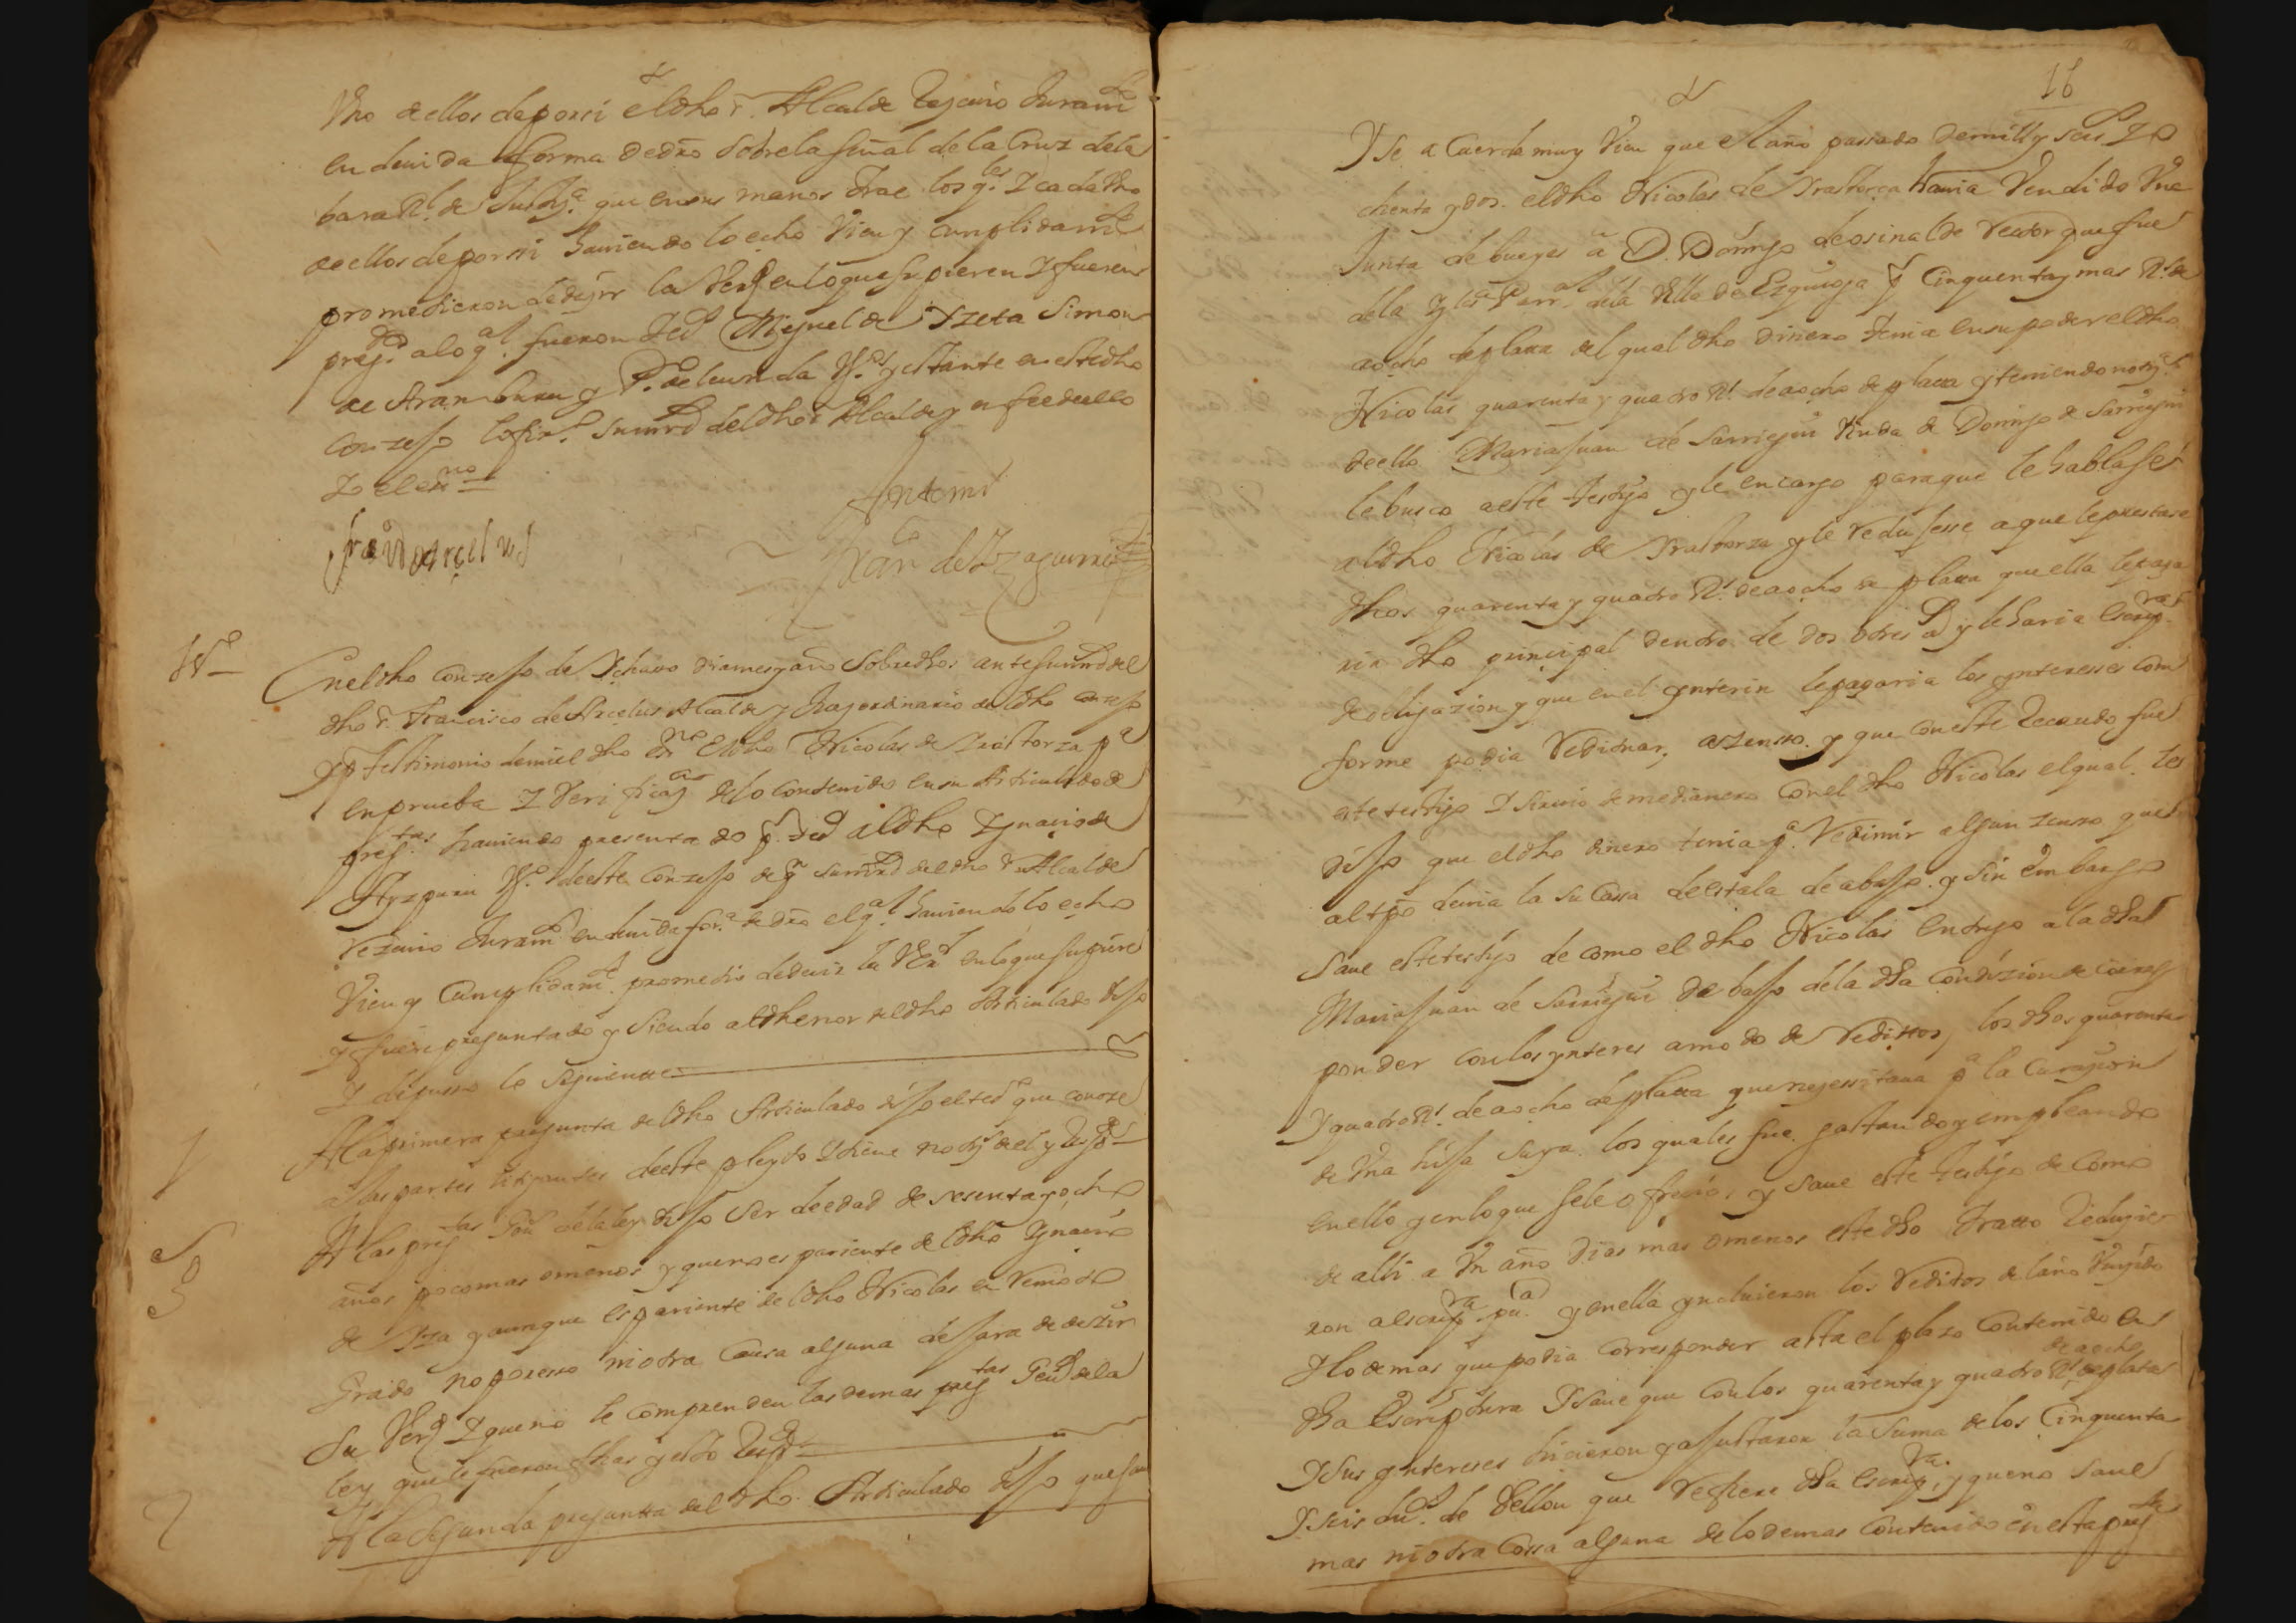 Vno de ellos de por si el dho s.r Alcalde Reciuio Juram.to
en deuida forma de dro sobre la señal de la Cruz de la
bara R.l de Just.a que en sus manos trae los q.les Y cada Vno
de ellos de por si hauiendo lo echo Vien y cumplidam.te
prometieron de dezir la Verd en lo que supieren Y fueren
preg.dos a lo q.l fueron test.os Miguel de Yzeta Simon
de Aramburu y P.o de V.os y estante en este dho
conzejo lo firmo su mrd del dho s.r Alcalde y en fee de ello
Yo el ess.no
Ante mi
Fran.co de Arcelus
Juan de Yzaguirre
V.o
En el dho conzejo de Ychaso dia mes y año sobre dhos ante su mrd del
dho s.r Francisco de Arcelus Alcalde y Juez ordinario del dho conzejo
y por testimonio de mi el dho Ess.no El dho Nicolas de Yraltorza p.a
en prueba Y Verificaz.on de lo contenido en su Articulado de
preg.tas hauiendo presentado p.r test.o al dho Ygnacio de
V.o de este conzejo de q.n su mrd del dho s.r Alcalde
Reziuio Juram.to en deuida for.a de dro el q.l hauiendo lo echo
Vien y Cumplidam.te prometio de deuir la Verd en lo que supiere
y fuere preguntado y siendo al thenor del dho Articulado dijo
Y depuso lo siguiente
1
A la primera pregunta del dho Articulado dijo el test.o que conoze
a las partes litigantes de este pleyto Y tiene notiz.a del y Resp.de
A las preg.tas Gen.s de la ley dijo ser de edad de sesenta y ocho
años poco mas o menos y que no es pariente del dho Ygnacio
de Yza y aunque es pariente del dho Nicolas en remoto
Grado no por esso ni otra Causa alguna dejara de dezir
la Verd Y que no le comprenden las demas preg.tas Gen.s de la
ley que le fueron fhas y esto Resp.de
2
A la segunda pregunta del dho Articulado dijo que saue
16
Y se acuerda muy Vien que el año passado de mill y seis.os Y o
chenta y dos el dho Nicolas de Yraltorza hauia Vendido Vna
Junta de bueyes a D. Domingo de osinalde Rector que fue
de la Yglesia Parr.l de la Villa de Ezquioga por Cinquenta y mas R.s de
a ocho de plata del qual dho dinero tenia en su poder el dho
Nicolas quarenta y quatro R.s de a ocho de plata y teniendo notiz.a
de ello Maria Juan de Sarriegui Viuda de Domingo de Sarriegui
le busco a este testigo y le encargo para que le hablase
al dho Nicolas de Yraltorza y le redujesse a que le prestase
dhos quarenta y quatro R.s de a ocho de plata que ella le paga
ria dho principal dentro de dos o tres a.s y le haria Escrip.ra
de obligazion y que en el ynterin le pagaria los yntereses con
forme podia redituar a zensso y que con este Recaudo fue
este testigo Y siruio de medianero con el dho Nicolas el qual les
dijo que el dho dinero tenia p.a Redimir algun zenso que
al tpo deuia la su Cassa de estala de abajo y sin embargo
Saue este testigo de como el dho Nicolas entrego a la dha
Maria Juan de Sarriegui debajo de la dha condizion de corres
ponder con los ynteres a modo de redittos los dhos quarenta
Y quatro R.s de a ocho de plata que nezessitaua p.a la Curazion
de Vna hija suya los quales fue gastando y empleando
en ello y en lo que se le ofrecio y saue este testigo de como
de alli a Vn año dias mas o menos este dho tratto Redugie
ron a escrip.ra pu.ca y en ella yncluieron los reditos del año Vençido
Y lo demas que podia corresponder asta el plazo contenido en
dha Escriptura Y saue que con los quarenta y quatro R.s de a ocho de plata
Y sus yntereses hicieron y ajustaron la suma de los Cinquenta
Y seis du.s de Vellon que refiere dha Escrip.ra y que no saue
mas ni otra Cossa alguna de lo demas contenido en esta preg.ta